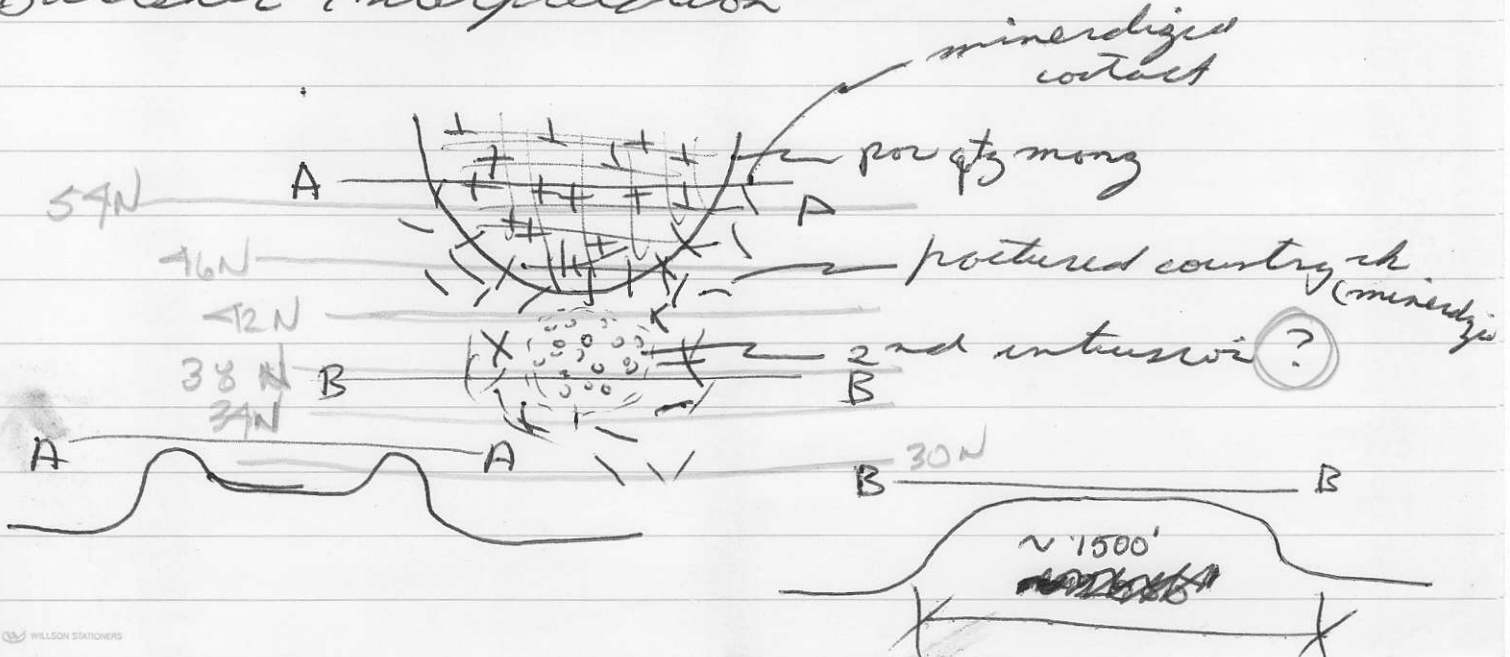 Interpretation
mineralized
contact
por qtz monz
A
A
54N
46N
fractured country rk
(mineralize
42N
2nd intrusion ?
38N
B
B
34N
A
A
30N
B
B
~ 1500'
WILLSON STATIONERS